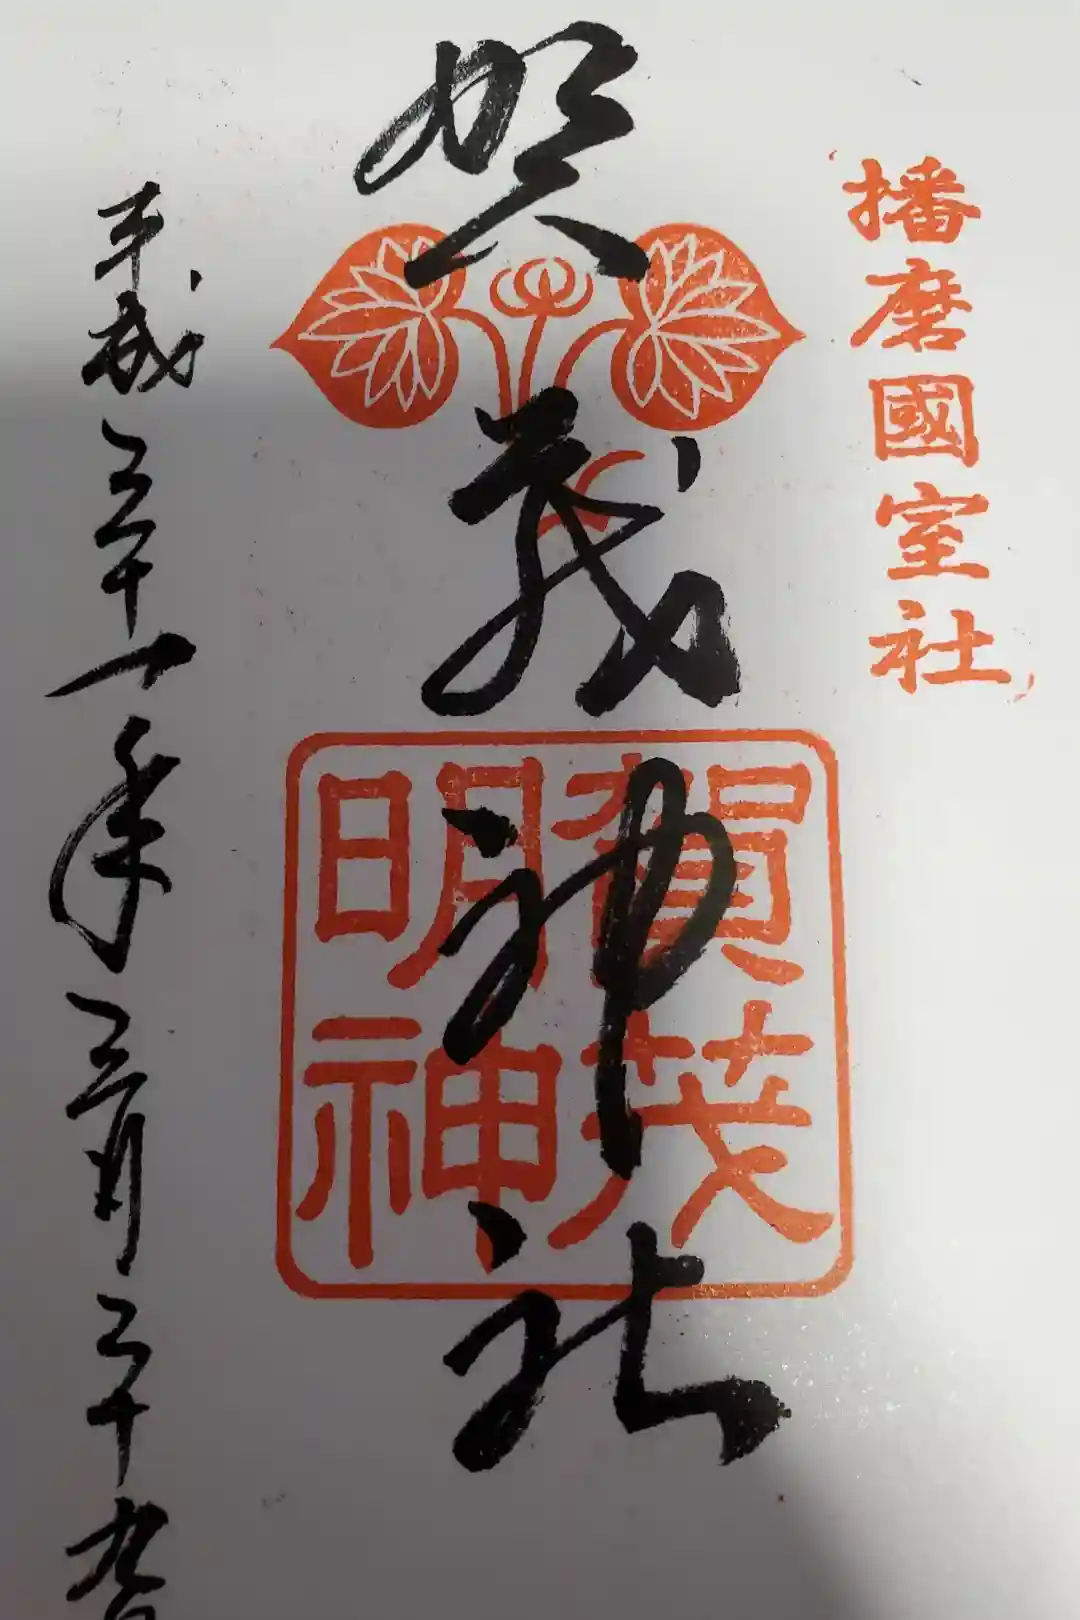 播磨國室社
賀茂神社
賀茂
明神
平成三十一年三月二十九日